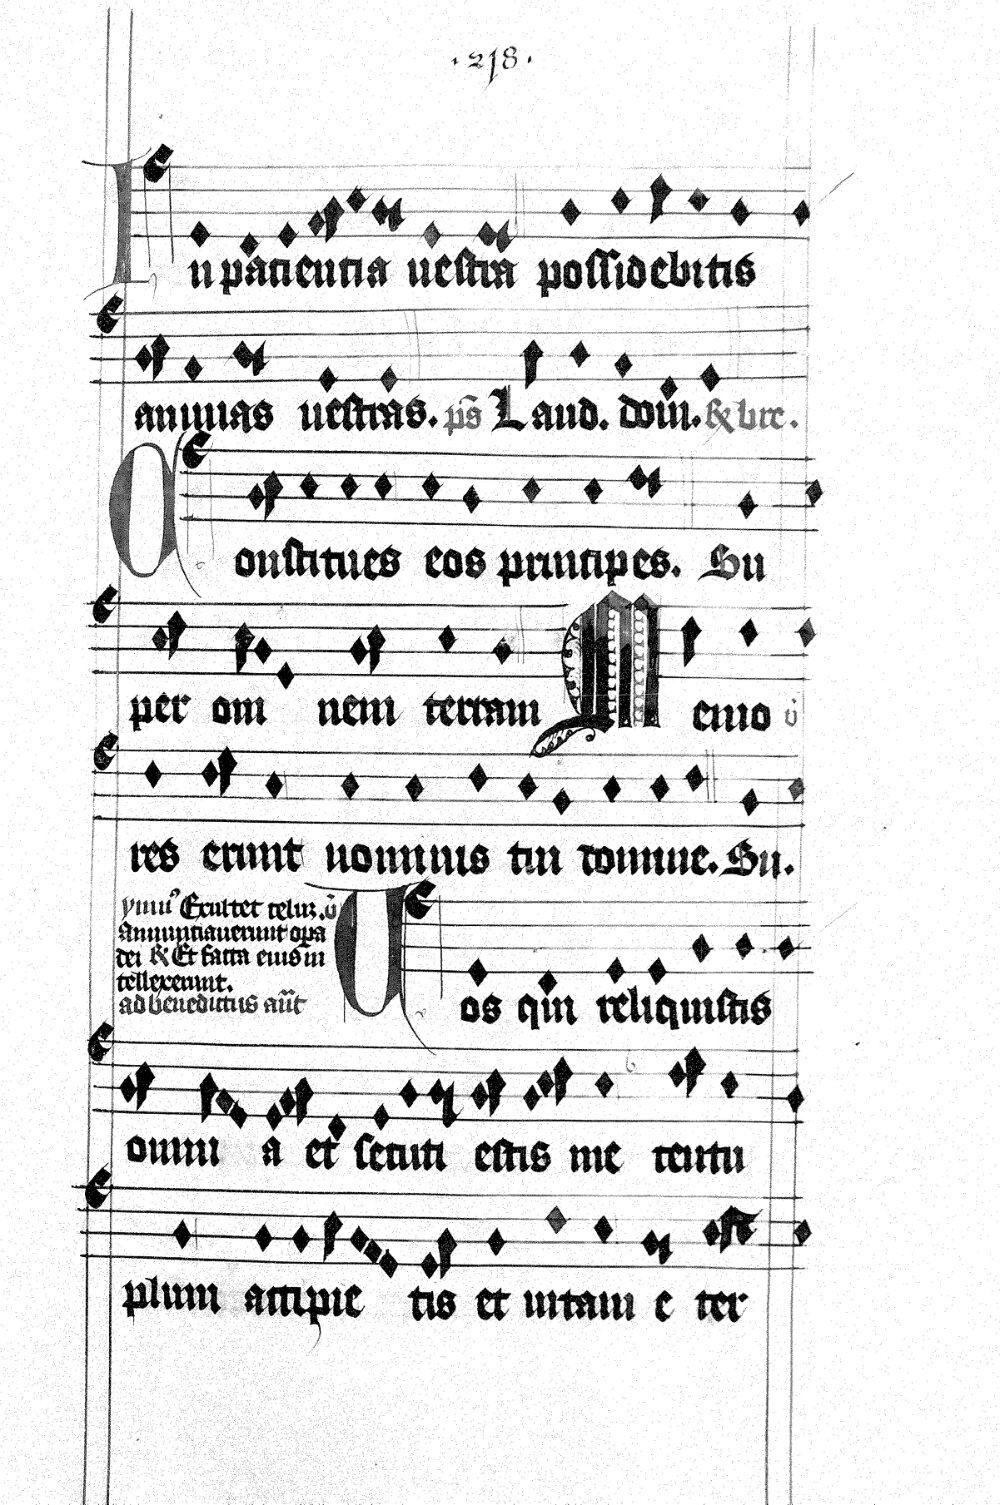 ·218·
In patientia uestra possidebitis
animas uestras. ps̄ Laud. dom̄. & bre.
Constitues eos principes. Su
per om nem terram Memo
res erunt nominis tui domine. Su.
ymn⁹ Exultet celuz.
Annuntiauerunt opa
dei & Et facta eius in
tellexerunt.
ad benedictus an̄t
Uos qui reliquistis
omni a et secuti estis me centu
plum accipie tis et uitam e ter